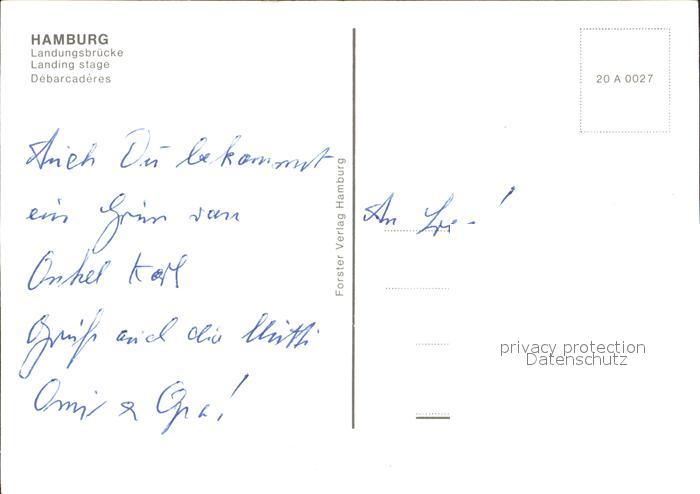 HAMBURG
Landungsbrücke
Landing stage
Débarcadéres
Auch Du bekommst
ein Grun von
Onkel Karl
Grüß auch die Mutti
Omi & Opa!
Forster Verlag Hamburg
20 A 0027
An
privacy protection
Datenschutz